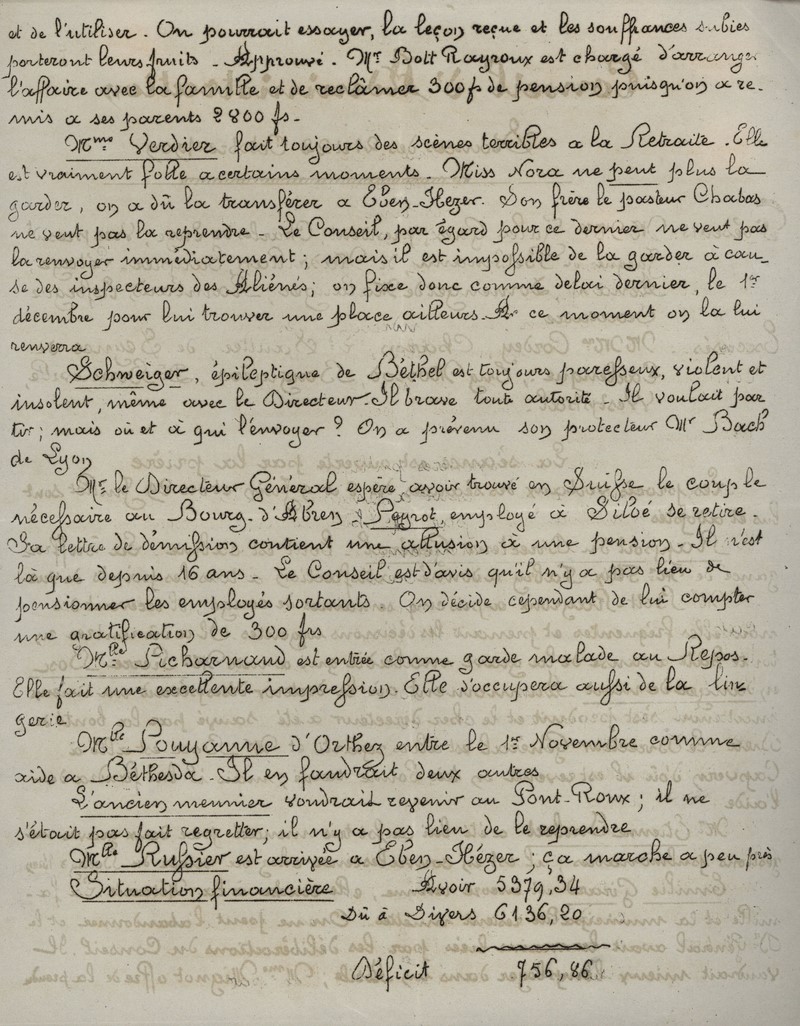 et de l'utiliser. On pourrait essayer, la leçon reçue et les souffrances subies
porteront leurs fruits - Approuvé. Mr Bott Rayroux est chargé d'arranger
l'affaire avec la famille et de reclamer 300 f de pension puisqu'on a re-
mis a ses parents 2800 fs-
Mme Verdier fait toujours des scènes terribles a la Retraite. Elle
est vraiment folle a certains moments. Miss Nora ne peut plus la
garder, on a dû la transférer a Eben-Hezer. Son frère le pasteur Chabas
ne veut pas la reprendre - Le Conseil, par égard pour ce dernier ne veut pas
la renvoyer immédiatement; mais il est impossible de la garder à cau-
se des inspecteurs des Aliénés; on fixe donc comme delai dernier, le 1er
décembre pour lui trouver une place ailleurs. A ce moment on la lui
renverra
Schweiger, épileptique de Béthel est toujours paresseux, violent et
insolent, même avec le Directeur. Il brave toute autorité - Il voulait par
tir; mais où et à qui l'envoyer? On a prévenu son protecteur Mr Bach
de Lyon
Mr le Directeur Général espère avoir trouvé en Suisse le couple
nécessaire au Bourg-d'Abren. Peyrot, employé à Siloé se retire.
Sa lettre de démission contient une allusion à une pension - Il n'est
là que depuis 16 ans - Le Conseil est d'avis qu'il n'y a pas lieu de
pensionner les employés sortants. On décide cependant de lui compter
une gratification de 300 frs
Mlle Picharnaud est entrée comme garde malade au Repos.
Elle fait une excellente impression. Elle s'occupera aussi de la lin
gerie
Mlle Pouyanne d'Orthez entre le 1er Novembre comme
aide a Béthesda - Il en faudrait deux autres
L'ancien meunier voudrait revenir au Pont-Roux; il ne
s'était pas fait regretter; il n'y a pas lieu de le reprendre
Mlle Russier est arrivée a Eben-Hézer; ça marche a peu près
Situation financière Avoir 5379,34
Dû à Divers 6136,20
Déficit 756,86